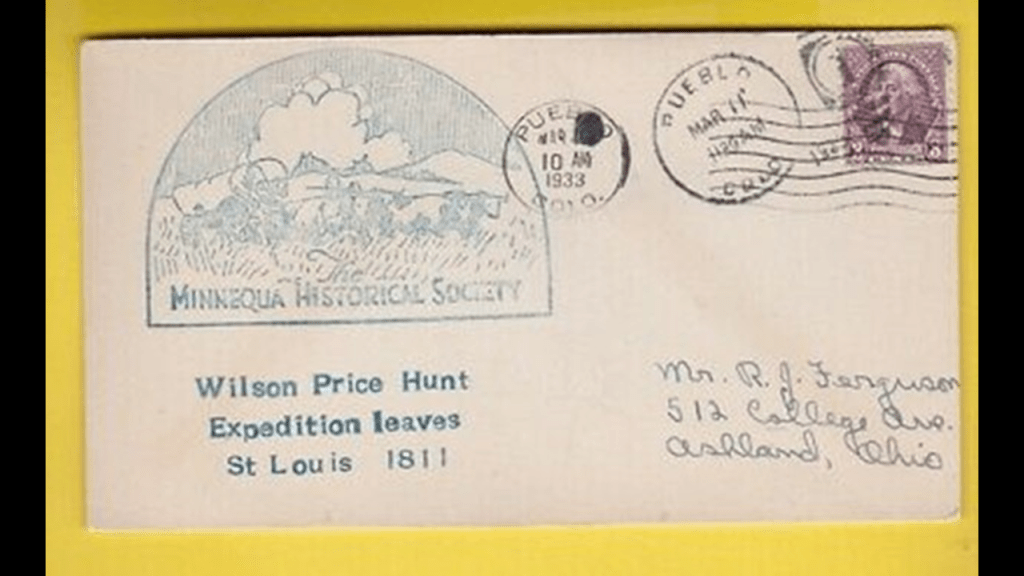 The
MINNEQUA HISTORICAL SOCIETY
PUEBLO
MAR
10 AM
1933
COLO.
PUEBLO
MAR 11
COLO
3
Wilson Price Hunt
Expedition leaves
St Louis 1811
Mr. R. J. Ferguson
512 College Ave.
Ashland, Ohio